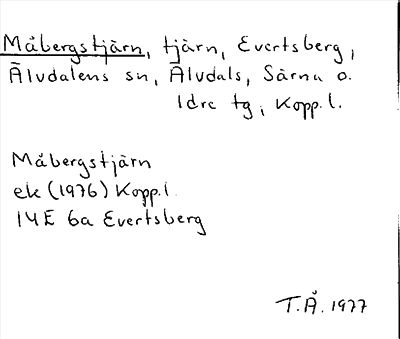 Måbergstjärn, tjärn, Evertsberg,
Älvdalens sn, Älvdals, Särna o.
Idre tg, Kopp.l.
Måbergstjärn
ek (1976) Kopp.l.
14E 6a Evertsberg
T.Å. 1977